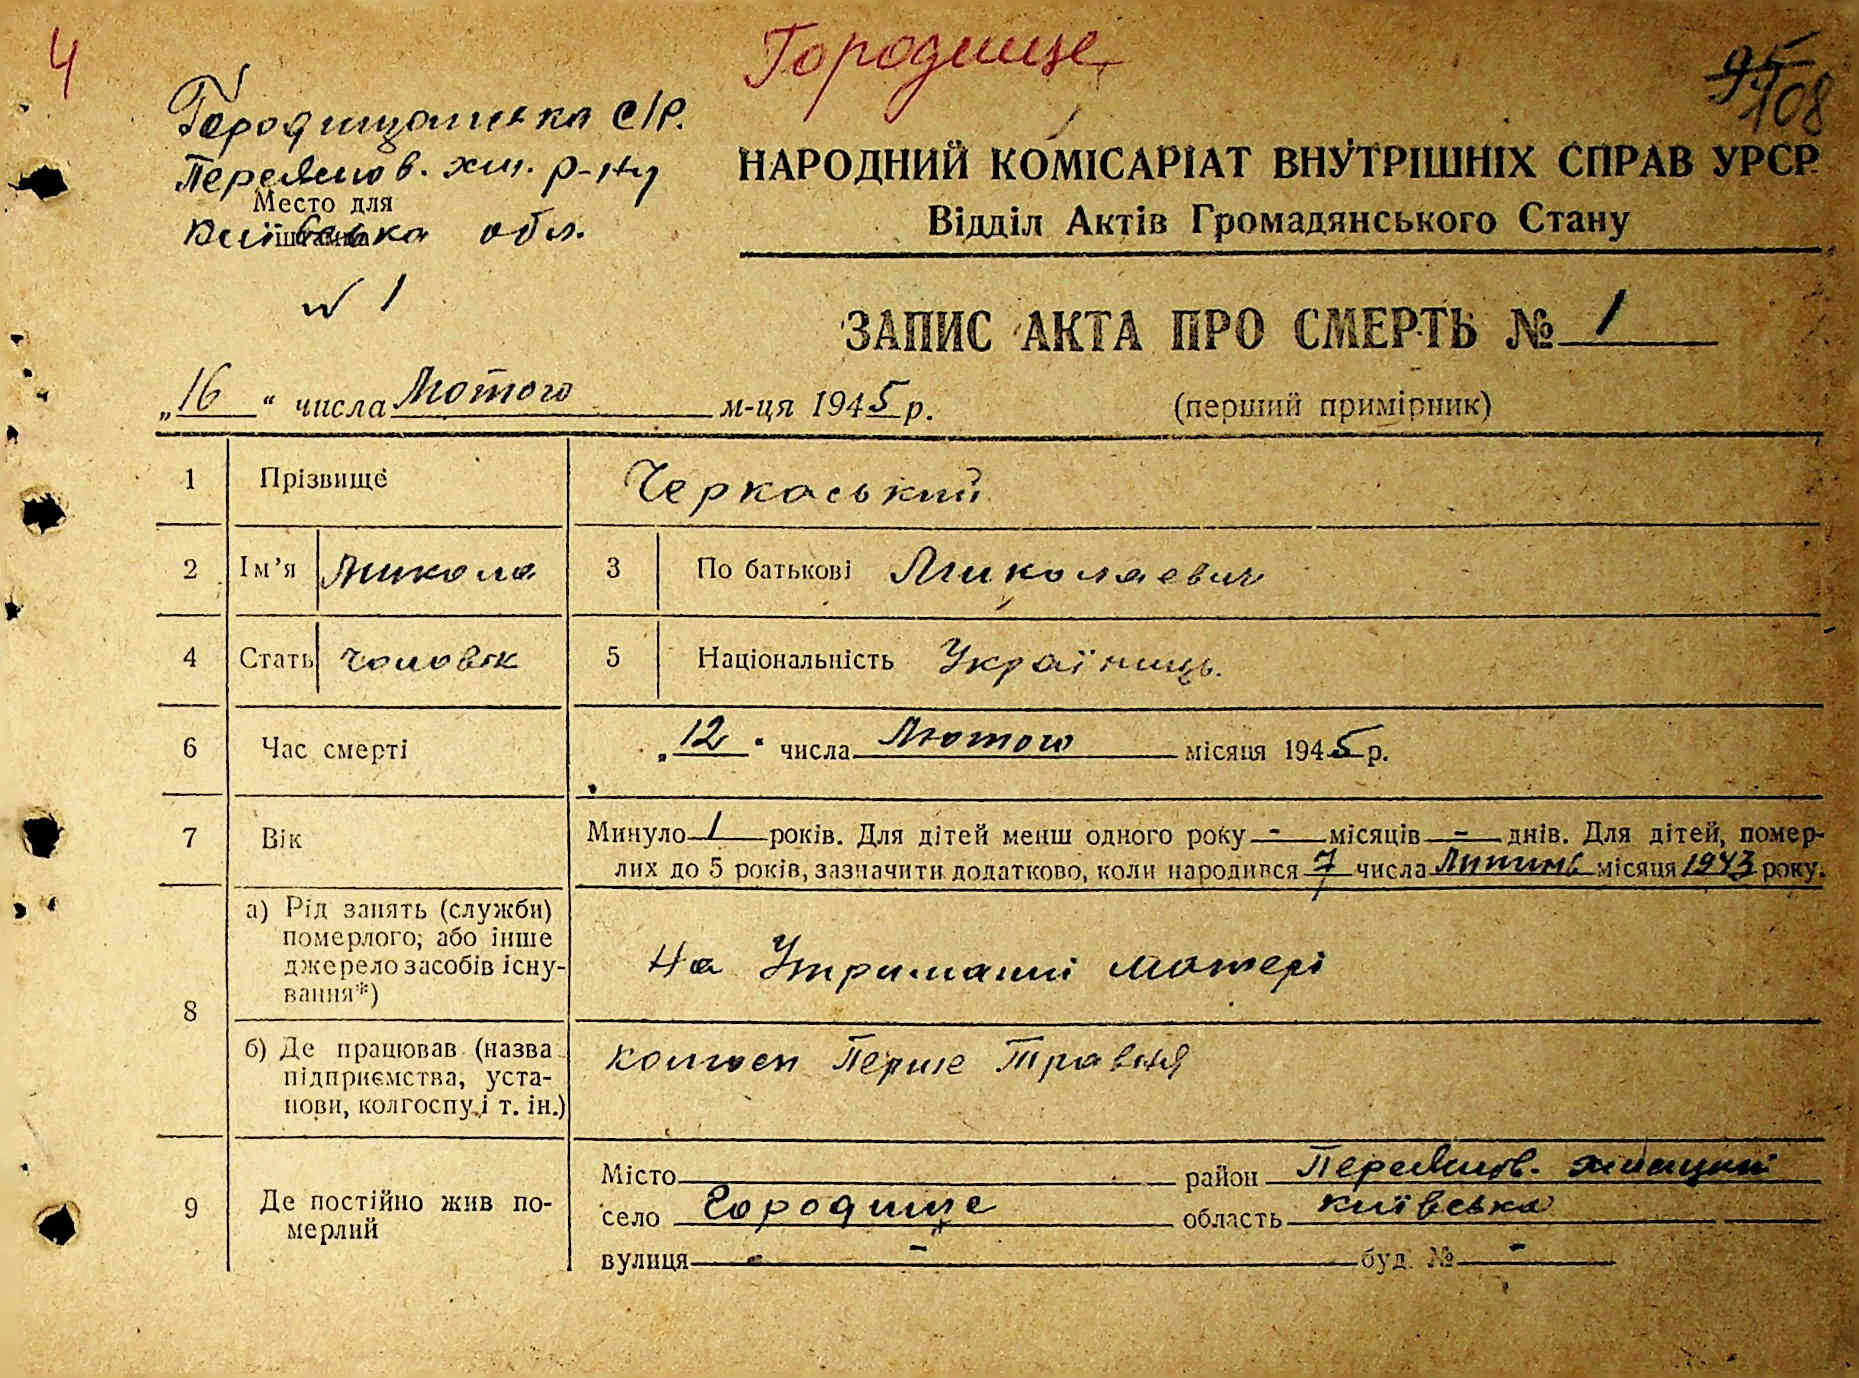 4
Городище
95
108
Городищанська С/Р.
Переяслов. хм. р-ну
Место для
штампа
Київська обл.
№ 1
НАРОДНИЙ КОМІСАРІАТ ВНУТРІШНІХ СПРАВ УРСР
Відділ Актів Громадянського Стану
ЗАПИС АКТА ПРО СМЕРТЬ № 1
„16“ числа Лютого м-ця 1945 р.
(перший примірник)
1 Прізвище Черкаський
2 Ім’я Микола 3 По батькові Миколаевич
4 Стать чоловік 5 Національність Україниць.
6 Час смерті „12“ числа Лютого місяця 1945 р.
7 Вік Минуло 1 років. Для дітей менш одного року - місяців - днів. Для дітей, помер-
лих до 5 років, зазначити додатково, коли народився 7 числа Липинь місяця 1943 року.
8 а) Рід занять (служби)
померлого; або інше
джерело засобів існу-
вання*)
На Утриманні матері
б) Де працював (назва
підприємства, уста-
нови, колгоспу і т. ін.)
колгосп Перше Травня
9 Де постійно жив по-
мерлий
Місто район Переяслов. хмицький
село Городище область Київська
вулиця - буд. № -